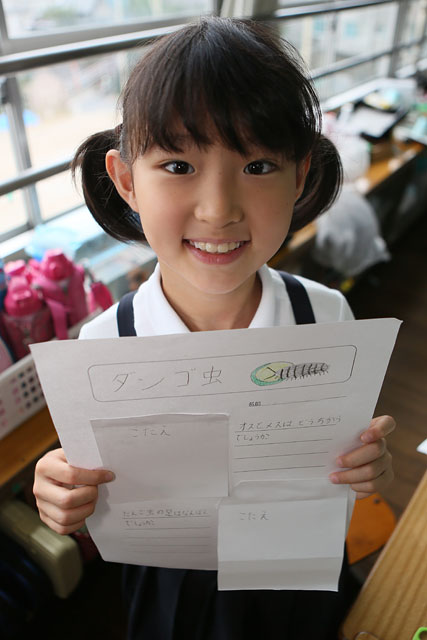 ダンゴ虫
名前
こたえ
オスとメスは どうちがう
でしょうか
だんご虫の足はなんほん
でしょうか
こたえ